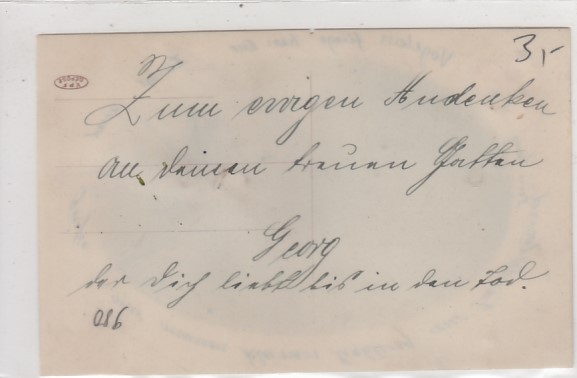 3,-
Zum ewigen Andenken
an deinen treuen Gatten
Georg
der dich liebt bis in den Tod.
980